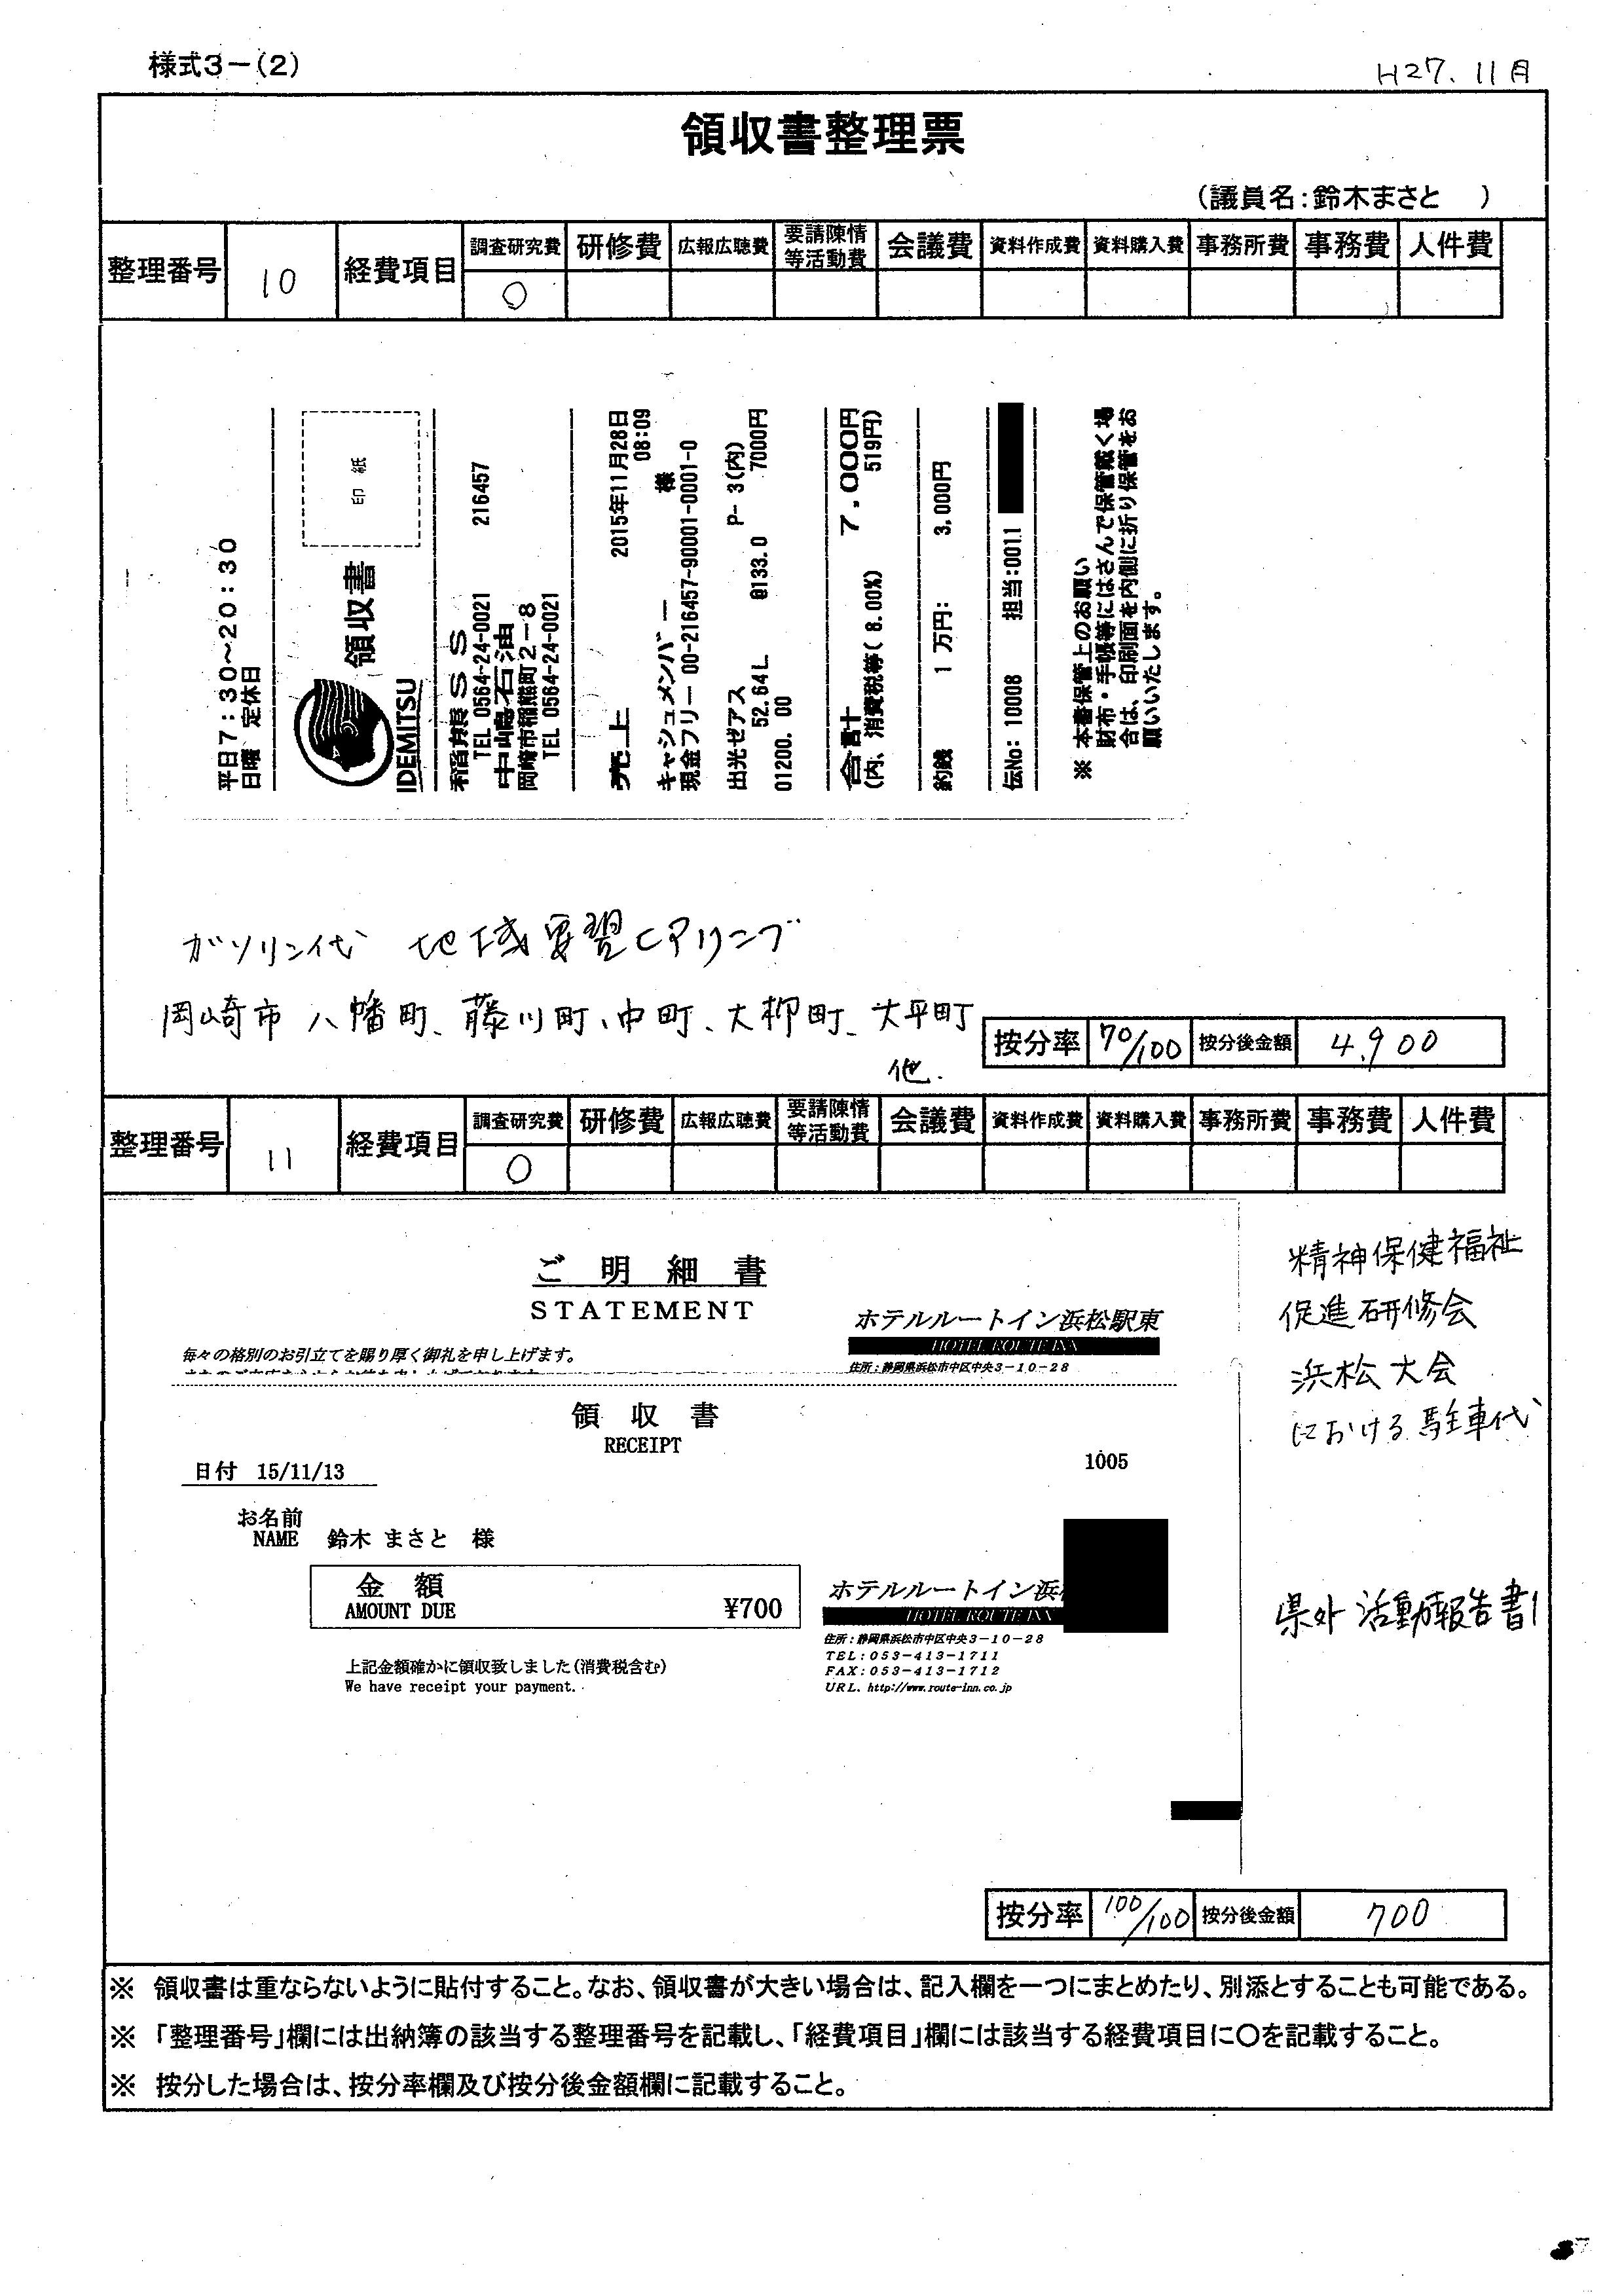 様式3－(2)
H27. 11月
領収書整理票
(議員名:鈴木まさと　)
整理番号 10 経費項目 調査研究費 研修費 広報広聴費 要請陳情等活動費 会議費 資料作成費 資料購入費 事務所費 事務費 人件費
○
平日7:30～20:30
日曜 定休日
IDEMITSU 領収書 印紙
稲熊SS 216457
TEL 0564-24-0021
中嶋石油
岡崎市稲熊町2－8
TEL 0564-24-0021
売上 2015年11月28日
08:09
キャシュメンバー 様
現金フリー 00-216457-90001-0001-0
出光ゼアス P- 3(内)
52.64L @133.0 7000円
01200. 00
合計 7,000円
(内、消費税等( 8.00%) 519円)
釣銭 1 万円: 3,000円
伝No: 10008 担当:0011
※ 本書保管上のお願い
財布・手帳等にはさんで保管戴く場
合は、印刷面を内側に折り保管をお
願いいたします。
ガソリン代 地域要望ヒアリング
岡崎市 八幡町、藤川町、中町、大柳町、大平町
他.
按分率 70/100 按分後金額 4,900
整理番号 11 経費項目 調査研究費 研修費 広報広聴費 要請陳情等活動費 会議費 資料作成費 資料購入費 事務所費 事務費 人件費
○
ご明細書
STATEMENT
ホテルルートイン浜松駅東
HOTEL ROUTE INN
毎々の格別のお引立てを賜り厚く御礼を申し上げます。
住所：静岡県浜松市中区中央3－10－28
精神保健福祉
促進研修会
浜松大会
における駐車代
領収書
RECEIPT
日付 15/11/13
1005
お名前
NAME 鈴木 まさと 様
金額
AMOUNT DUE ¥700
ホテルルートイン浜
HOTEL ROUTE INN
住所：静岡県浜松市中区中央3－10－28
TEL：053－413－1711
FAX：053－413－1712
URL. http://www.route-inn.co.jp
上記金額確かに領収致しました(消費税含む)
We have receipt your payment.
県外活動報告書1
按分率 100/100 按分後金額 700
※ 領収書は重ならないように貼付すること。なお、領収書が大きい場合は、記入欄を一つにまとめたり、別添とすることも可能である。
※ 「整理番号」欄には出納簿の該当する整理番号を記載し、「経費項目」欄には該当する経費項目に○を記載すること。
※ 按分した場合は、按分率欄及び按分後金額欄に記載すること。